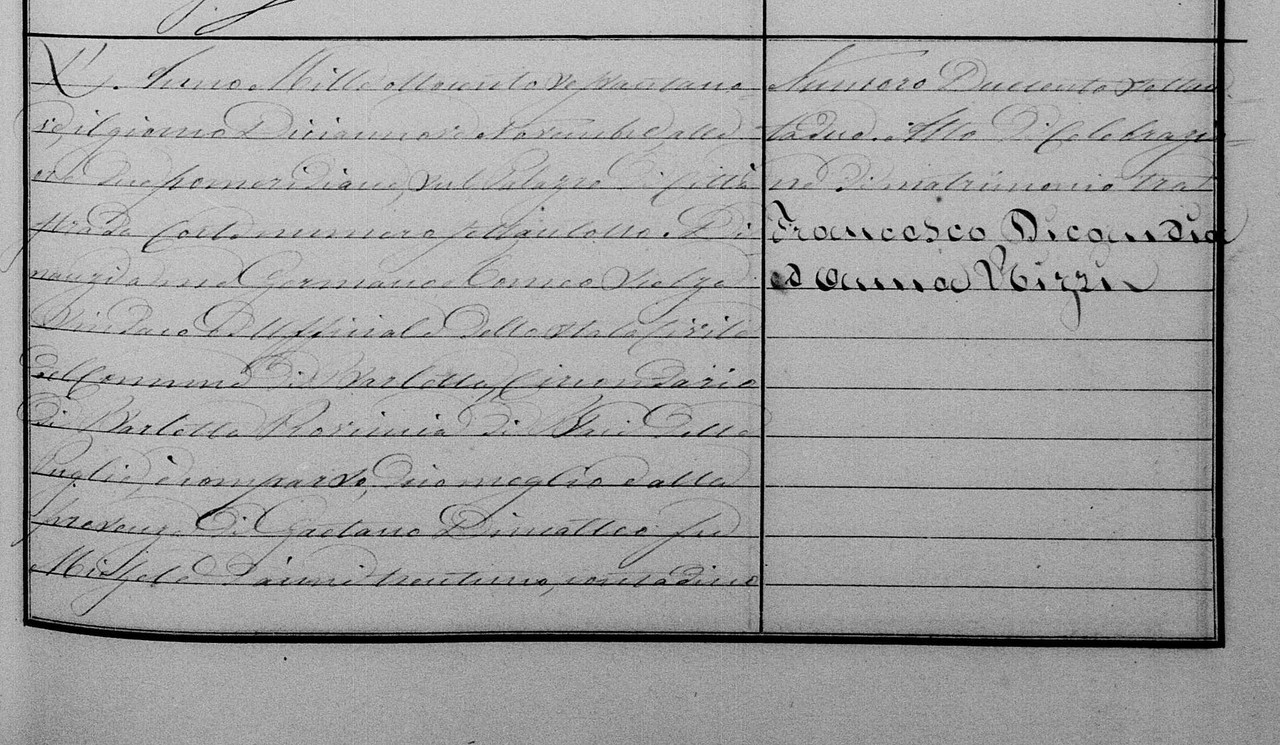 L'Anno Mille ottocento settantano=
ve, il giorno Diciannove Novembre, alle
ore due pomeridiane, sul Palazzo di Città
Strada Corte numero settantotto. Di=
nanzi a me Germano
Sindaco ed Uffiziale dello Stato Civile
del Comune di Barletta, Circondario
di Barletta Provincia di Bari delle
Puglie, è comparso, dico meglio ed alla
presenza di Gaetano Dimatteo fu
Michele d'anni trentuno, contadino
Numero Duecento settan=
tadue. Atto di Celebrazio=
ne di matrimonio tra
Francesco Dicandia
ed Anna Rizzi